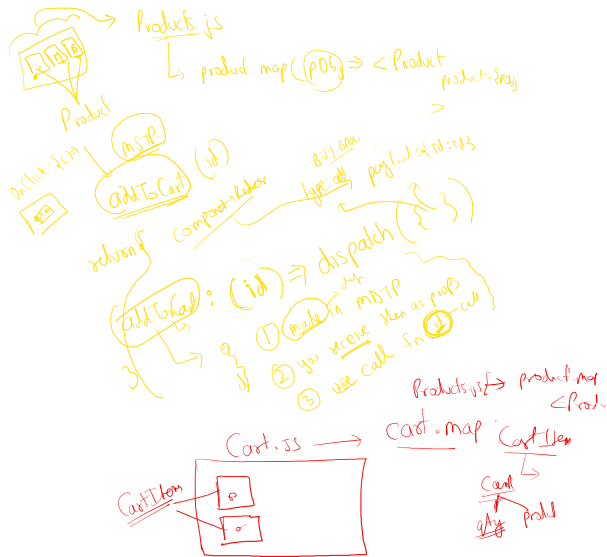 Products.js
product.map(pObj => <Product
product={pObj
Product
MSTP
onClick={(
addToCart (id)
type: add payload:{id:id}}
return {
addToCart : (id) => dispatch({ })
}
① made in MDTP
② you receive then as props
③ use call fn call
Products.js → product.map
<Produ
Cart.js → cart.map CartItem
CartItem
Cart
qty product